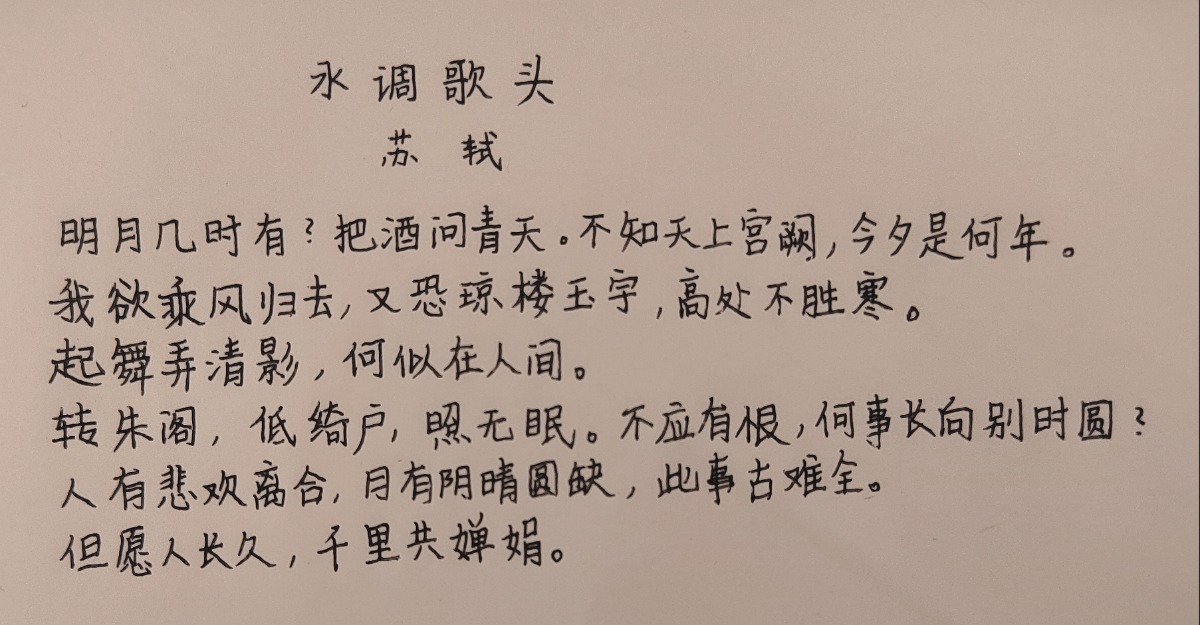 水调歌头
苏轼
明月几时有？把酒问青天。不知天上宫阙，今夕是何年。
我欲乘风归去，又恐琼楼玉宇，高处不胜寒。
起舞弄清影，何似在人间。
转朱阁，低绮户，照无眠。不应有恨，何事长向别时圆？
人有悲欢离合，月有阴晴圆缺，此事古难全。
但愿人长久，千里共婵娟。